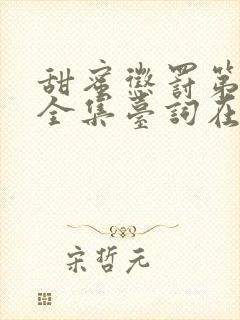 甜蜜懲罰第
全集臺詞在
宋哲元